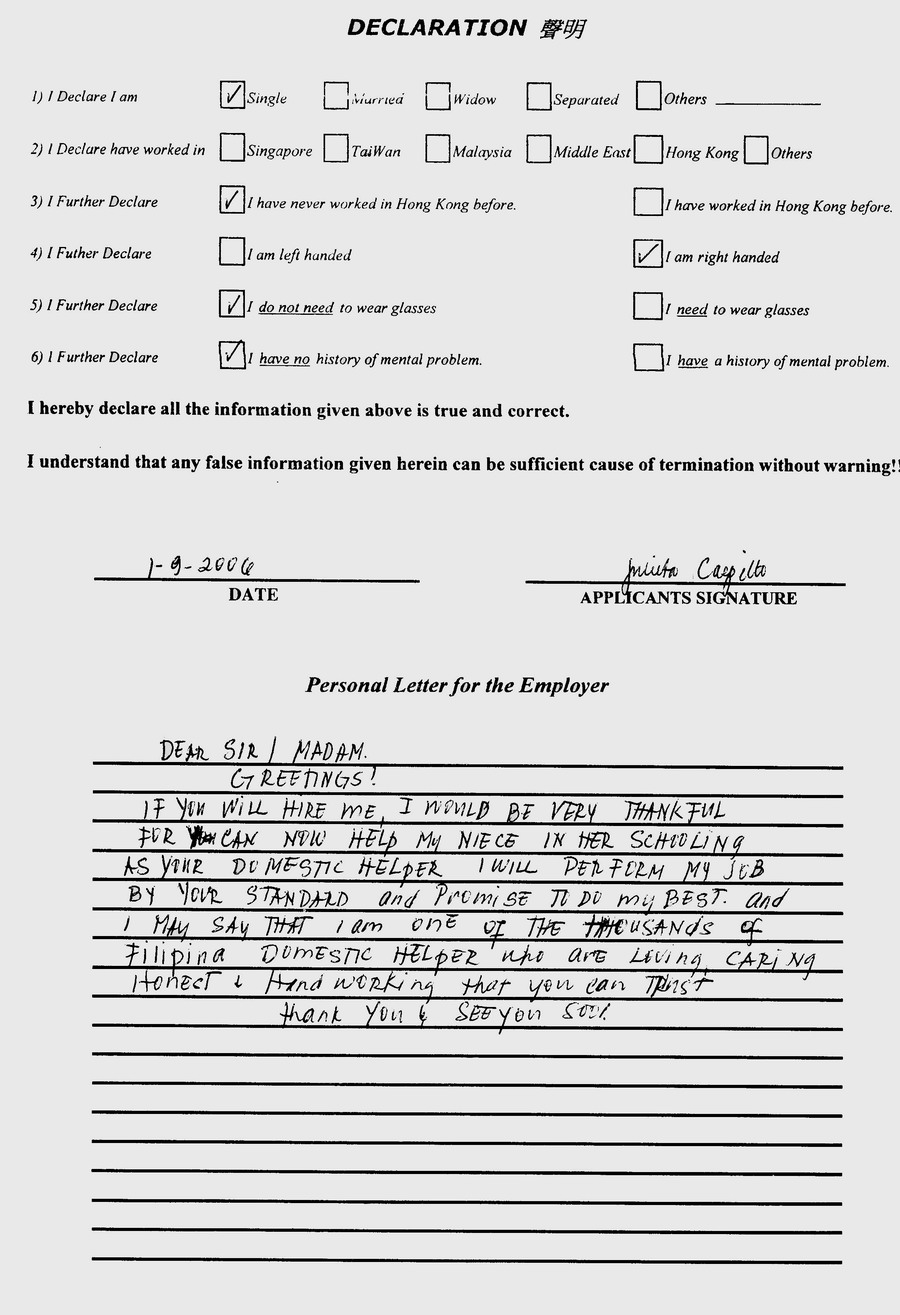 DECLARATION 聲明
1) I Declare I am ✓ Single Married Widow Separated Others
2) I Declare have worked in Singapore TaiWan Malaysia Middle East Hong Kong Others
3) I Further Declare ✓ I have never worked in Hong Kong before. I have worked in Hong Kong before.
4) I Futher Declare I am left handed ✓ I am right handed
5) I Further Declare ✓ I do not need to wear glasses I need to wear glasses
6) I Further Declare ✓ I have no history of mental problem. I have a history of mental problem.
I hereby declare all the information given above is true and correct.
I understand that any false information given herein can be sufficient cause of termination without warning!!
1-9-2006
DATE APPLICANTS SIGNATURE
Personal Letter for the Employer
DEAR SIR / MADAM.
GREETINGS!
IF YOU WILL HIRE ME, I WOULD BE VERY THANKFUL
FOR CAN NOW HELP MY NIECE IN HER SCHOOLING
AS YOUR DOMESTIC HELPER I WILL PERFORM MY JOB
BY YOUR STANDARD and PromiSE TO DO my BEST. and
I MAY SAY THAT I am ONE OF THE THOUSANDS of
Filipina DOMESTIC HELPER who are Loving, CARING
HonesT & Hard WORKing that you can TRUST
thank YOU & SEE YOU SOON.